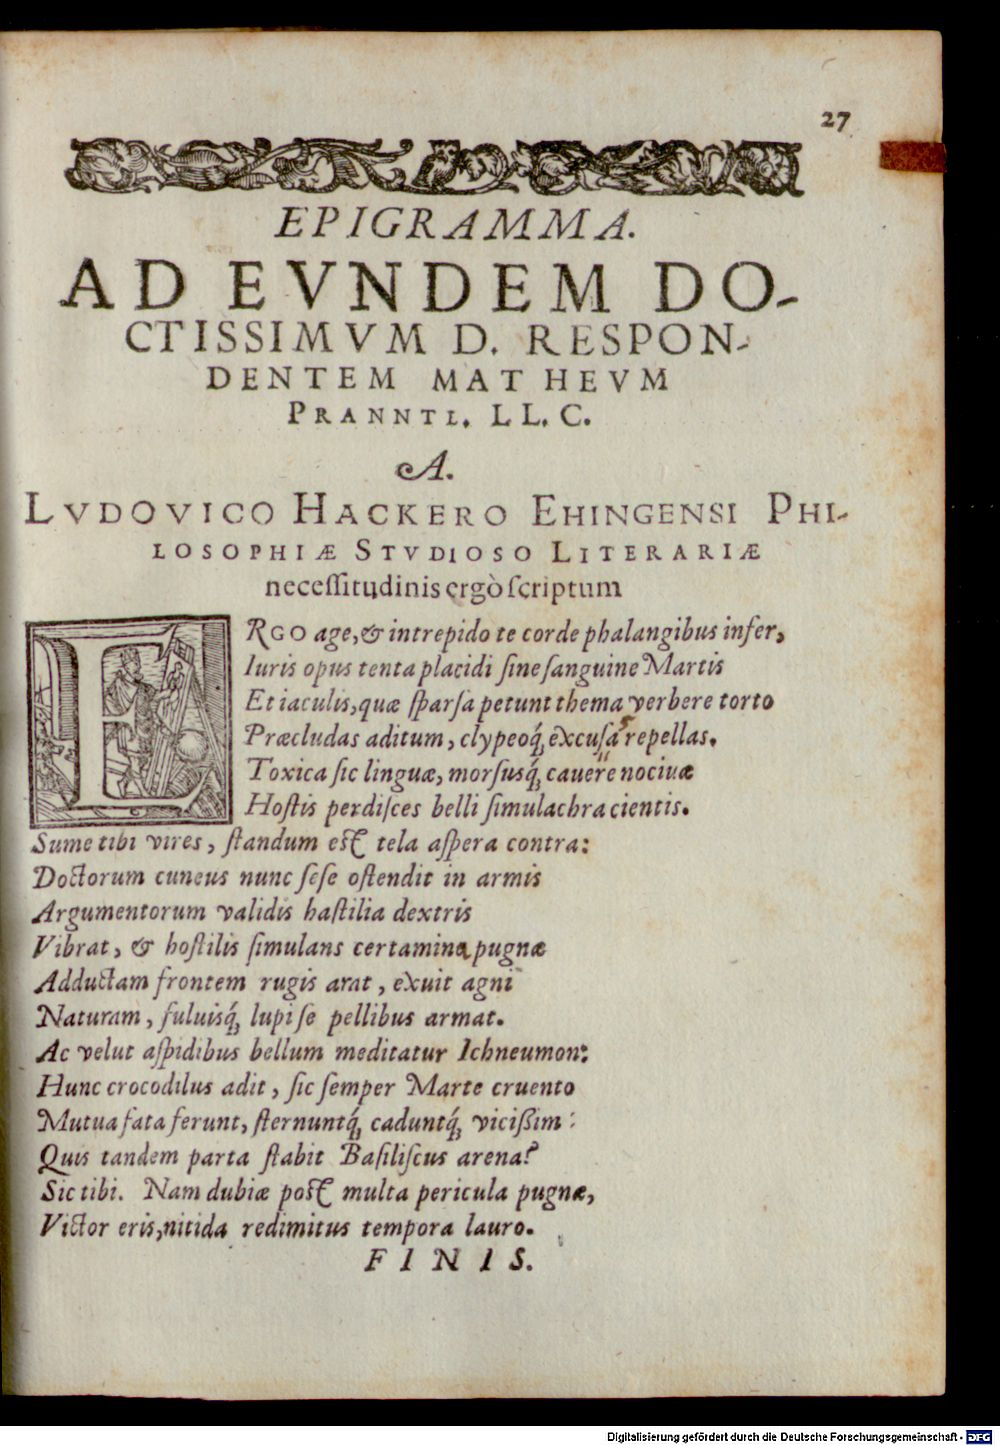 27
EPIGRAMMA.
AD EVNDEM DO-
CTISSIMVM D. RESPON-
DENTEM MATHEVM
PRANNTL. LL. C.
A.
LVDOVICO HACKERO EHINGENSI PHI-
LOSOPHIÆ STVDIOSO LITERARIÆ
necessitudinis ergò scriptum
ERGO age, & intrepido te corde phalangibus infer,
Iuris opus tenta placidi sine sanguine Martis
Et iaculis, quæ sparsa petunt thema verbere torto
Præcludas aditum, clypeoq́; excusa repellas.
Toxica sic linguæ, morsusq́; cauere nociuæ
Hostis perdisces belli simulachra cientis.
Sume tibi vires, standum est tela aspera contra:
Doctorum cuneus nunc sese ostendit in armis
Argumentorum validis hastilia dextris
Vibrat, & hostilis simulans certamina pugnæ
Adductam frontem rugis arat, exuit agni
Naturam, fuluisq́; lupi se pellibus armat.
Ac velut aspidibus bellum meditatur Ichneumon:
Hunc crocodilus adit, sic semper Marte cruento
Mutua fata ferunt, sternuntq́; caduntq́; vicißim:
Quis tandem parta stabit Basiliscus arena?
Sic tibi. Nam dubiæ post multa pericula pugnæ,
Victor eris, nitida redimitus tempora lauro.
FINIS.
Digitalisierung gefördert durch die Deutsche Forschungsgemeinschaft - DFG